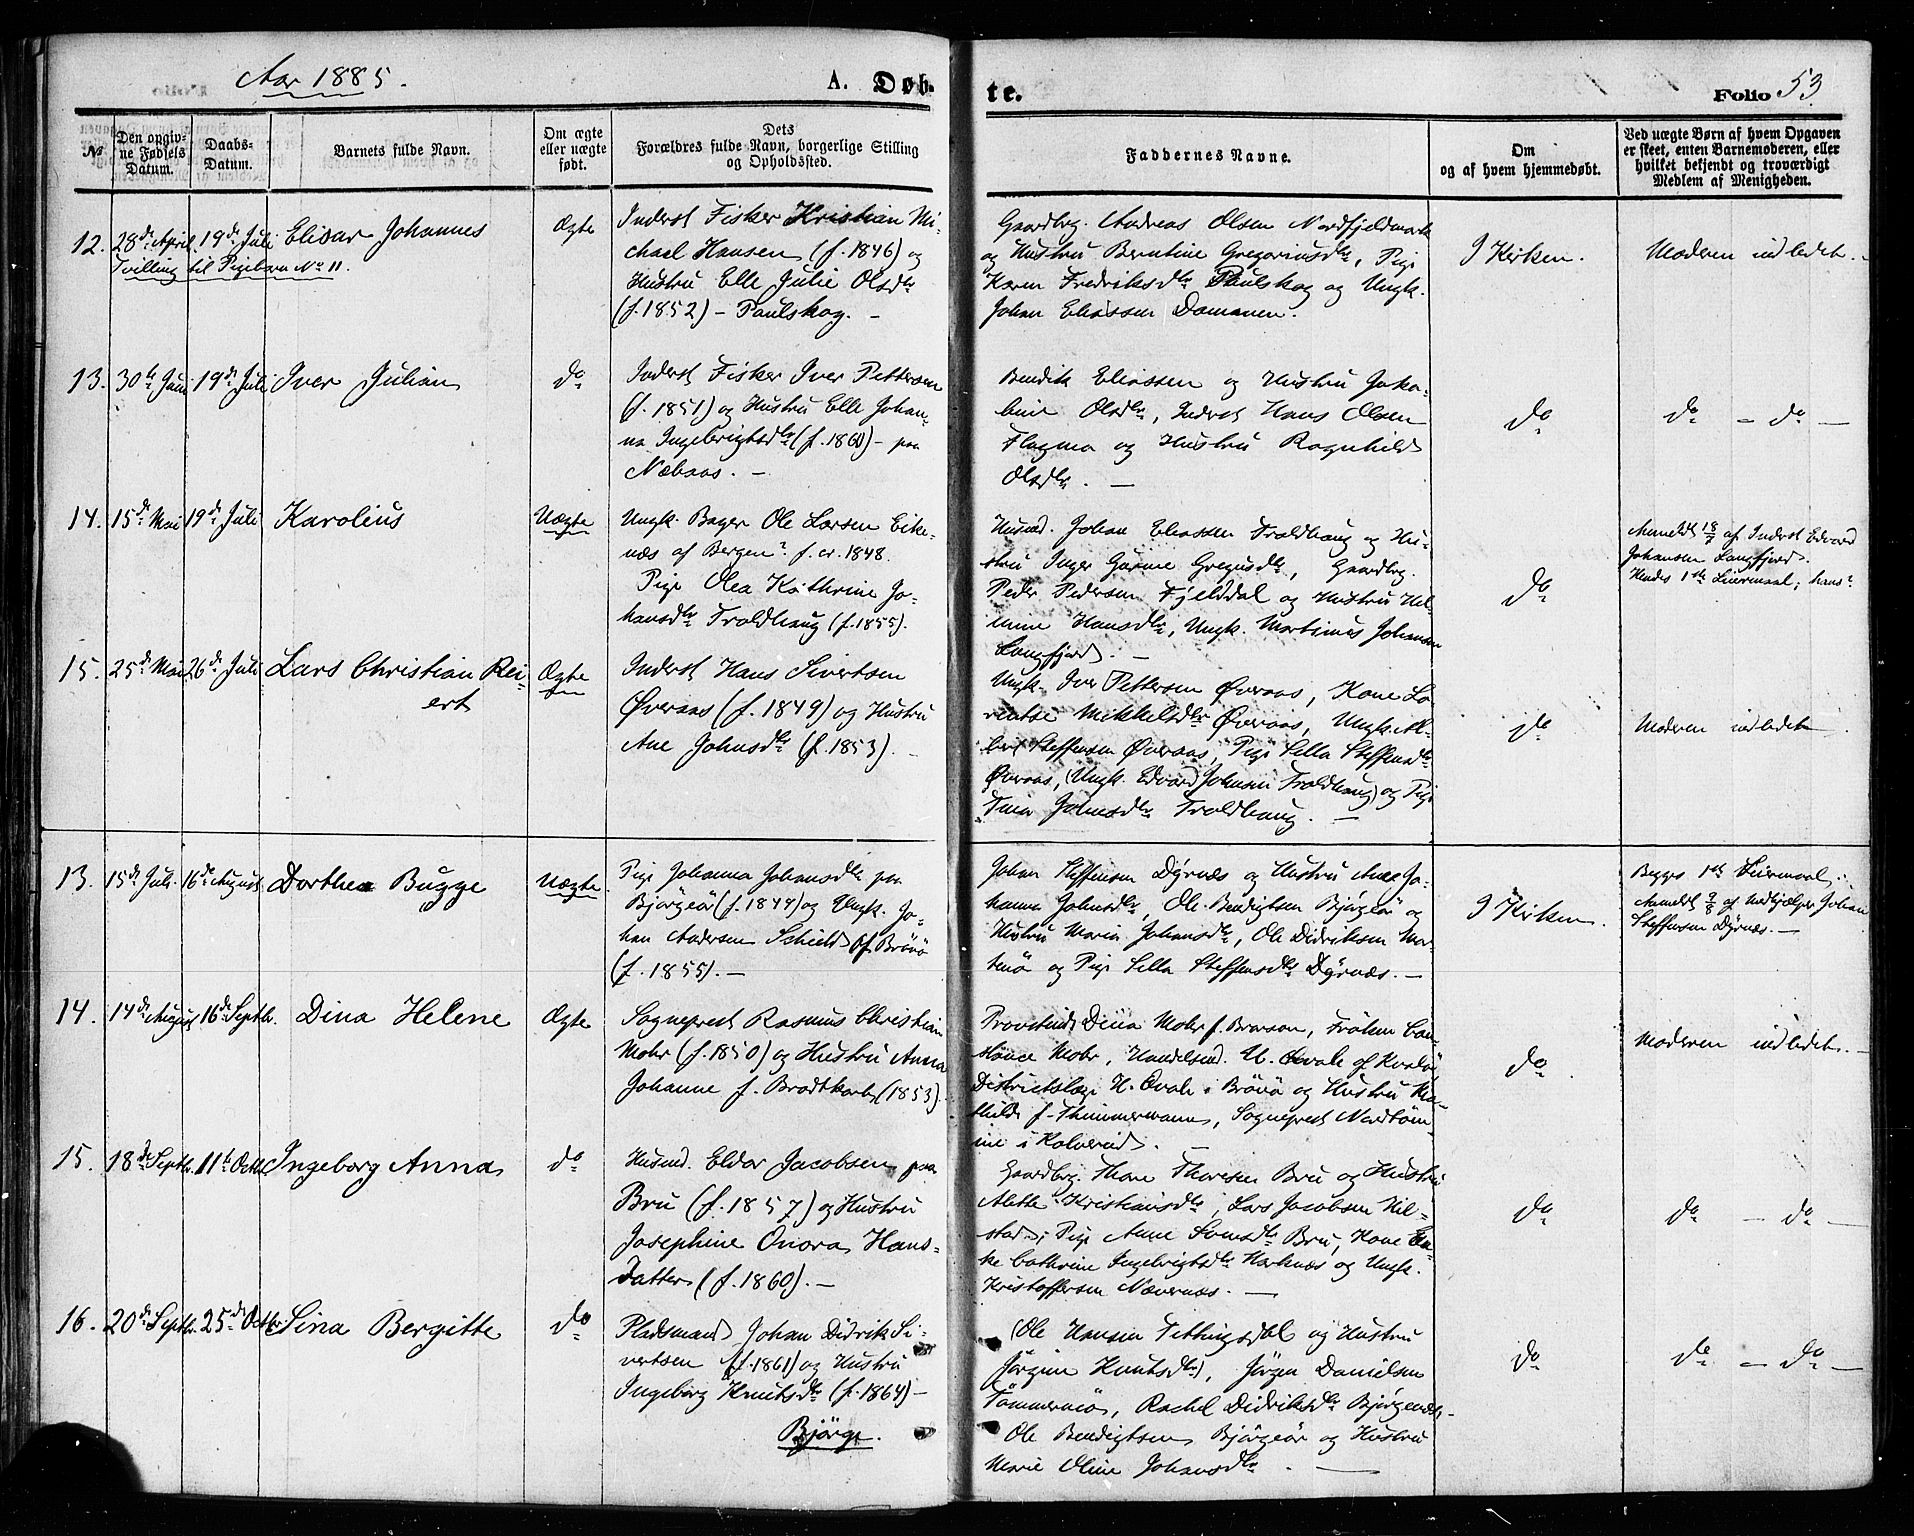 Aar 1885.
A. Døb-
te.
Folio 53
No
Den opgiv-
ne Fødsels
Datum.
Daabs-
Datum.
Barnets fulde Navn.
Om ægte
eller uægte
født.
Dets
Forældres fulde Navn, borgerlige Stilling
og Opholdssted.
Faddernes Navne.
Om
og af hvem hjemmedøbt.
Ved uægte Børn af hvem Opgaven
er skeet, enten Barnemoderen, eller
hvilket bekjendt og troværdigt
Medlem af Menigheden.
12. 28de April 19de Juli Elisar Johannes Ægte
Tvilling til Pigebarn No 11.
Inderst Fisker Kristian Mi-
chael Hansen (f. 1846) og
Hustru Elle Julie Olsdtr
(f. 1852) - Paulskog. -
Gaardbrg. Andreas Olsen Nordfjeldmark
og Hustru Berntine Gregoriusdtr, Pige
Karen Fredriksdtr Paulskog og Ungk.
Johan Eliassen Damanen.
I Kirken.
Moderen indledet. -
13. 30te Juni 19de Juli Iver Julian do
Inderst Fisker Iver Pettersen
(f. 1851) og Hustru Elle Johan-
na Ingebrigtsdtr (f. 1860) - paa
Næbaas. -
Bendik Eliassen og Hustru Jako-
bine Olsdtr, Inderst Hans Olsen
Flagma og Hustru Ragnhild
Olsdtr. -
do
do - do -
14. 15de Mai 19de Juli Karolius Uægte
Ungk. Bager Ole Larsen Eike-
næs af Bergen? f. cr. 1848.
Pige Olea Kathrine Jo-
hansdtr Troldhaug (f. 1855).
Husmd. Johan Eliassen Troldhaug og Hu-
stru Inger Gurine Gregusdtr, Gaardbrg.
Peder Pedersen Fjelddal og Hustru Hel-
mine Hansdtr, Ungk. Martinus Johansen
Langfjord. -
do
Anmeldt 18/7 af Inderst Edvard
Johansen Langfjord.
Hendes 1ste Leiermaal; hans?
15. 25de Mai 26de Juli Lars Christian Rei-
ert
Ægte
Inderst Hans Sivertsen
Øveraas (f. 1849) og Hustru
Ane Johnsdtr (f. 1853). -
Ungk. Iver Pettersen Øveraas, Kone Lo-
rentse Mikkelsdtr Øveraas, Ungk. Al-
bert Steffensen Øveraas, Pige Sella Steffensdtr
Øveraas, (Ungk. Edvard Johnsen Troldhaug) og Pige
Trine Johnsdtr Troldhaug. -
do
Moderen indledet.
13. 15de Juli 16de August Dorthea Bugge Uægte
Pige Johanna Johansdtr paa
Bjørgeör (f. 1844) og Ungk. Jo-
han Andersen Schield af Brönö
(f. 1855). -
Johan Steffensen Dyrnæs og Hustru Ane Jo-
hanna Johnsdtr, Ole Bendigtsen Bjørgeör og
Hustru Maria Johansdtr, Ole Didriksen Mar-
tenö og Pige Sella Steffensdtr Dyrnæs. -
I Kirken.
Begges 1ste Leiermaal.
Anmeldt 9/8 af Medhjælper Johan
Steffensen Dyrnæs. -
14. 14de August 16de Septbr. Dina Helene Ægte
Sogneprest Rasmus Christian
Mohr (f. 1850) og Hustru Anna
Johanne f. Brodtkorb (1853).
Provstinde Dina Mohr f. Brorson, Frøken Con-
stance Mohr, Handelsmd. U. Qvale af Kvalö,
Districtslæge H. Qvale i Brönö og Hustru Ma-
thilde f. Thimmermann, Sogneprest Nordtöm-
me i Kolvereid. -
do
Moderen indledet. -
15. 18de Septbr. 11te Octbr Ingeborg Anna do
Husmd. Eldor Jacobsen paa
Bru (f. 1857) og Hustru
Josephine Onora Hans-
datter (f. 1860). -
Gaardbrg. Thore Thoresen Bru og Hustru
Alette Kristiansdtr, Lars Jacobsen Hil-
stad, Pige Anne Larsdtr Bru, Kone En-
ke Cathrine Ingebrigtsdtr Horknes og Ungk.
Kristoffersen Nævernæs. -
do
do - do -
16. 20de Septbr. 25de Octbr Sina Bergitte do
Pladsmand Johan Didrik Si-
vertsen (f. 1861) og Hustru
Ingeborg Knutsdtr (f. 1864) -
Bjørge.
(Ole Hansen Tettingsdal og Hustru
Jørgine Knutsdtr), Jørgen Danielsen
Tömmernæs, Rachel Didriksdtr Bjørgeodde,
Ole Bendigtsen Bjørgeör og Hustru
Marie Oline Johansdtr. -
do
do - do -